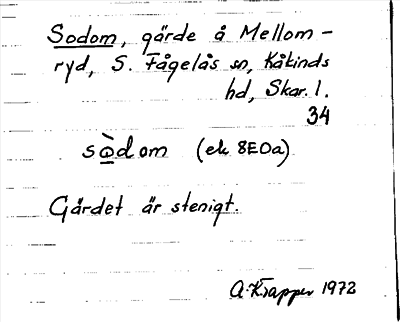 Sodom, gärde å Mellom-
ryd, S. Fågelås sn, Kåkinds
hd, Skar. l.
34
sòdom (ek 8E0a)
Gärdet är stenigt.
A. Krapper 1972